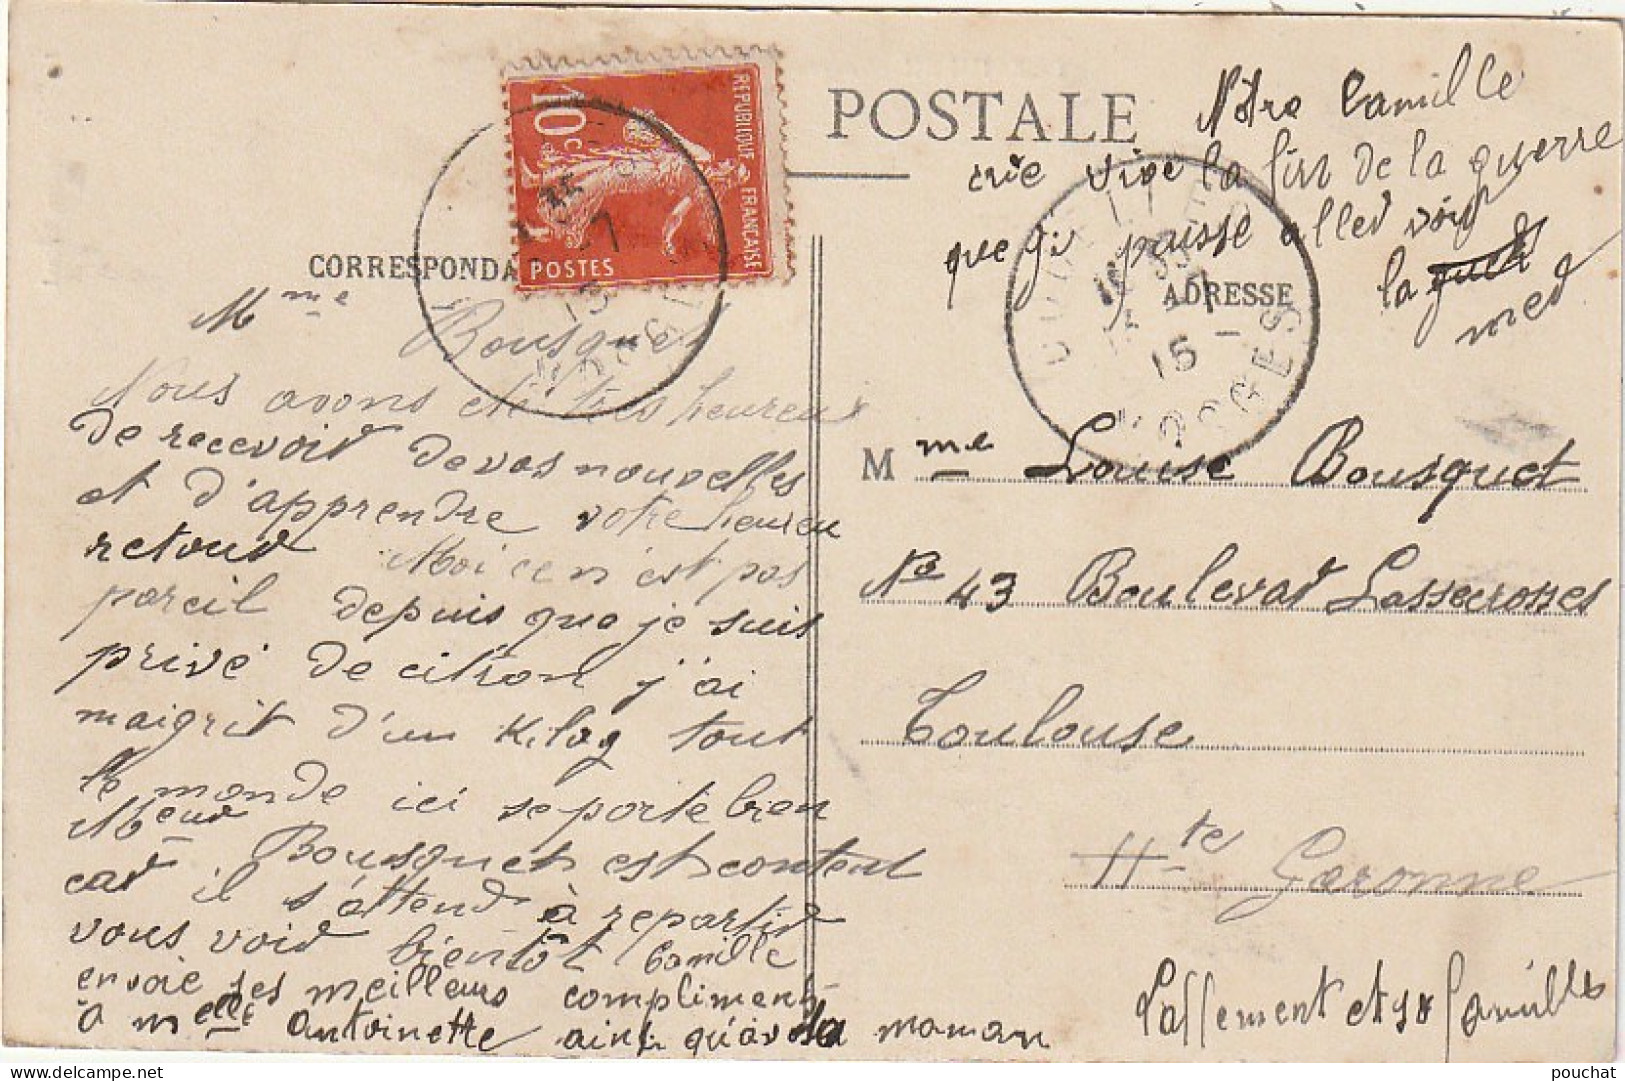 POSTALE
CORRESPONDA
ADRESSE
REPUBLIQUE FRANÇAISE
10c
POSTES
15
VOSGES
Notre Camille
crie vive la fin de la guerre
que ji puisse aller voir
la
mer
Mme Bousquet
Nous avons été très heureux
de recevoir de vos nouvelles
et d'apprendre votre heureu
retour Moi ce n'est pas
pareil depuis que je suis
privé de citron j'ai
maigrit d'un kilog tout
le monde ici se porte bien
Meur Bousquet est content
car il s'attend à repartir
vous voir bientôt Camille
envoie ses meilleurs compliments
à Melle Antoinette ainsi qu'à sa maman
Mme Louise Bousquet
No 43 Boulevar Lassecrosses
Toulouse
Hte Garonne
Laffement et sa famille
pouchat